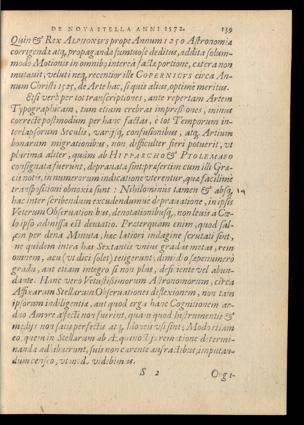 DE NOVA STELLA ANNI 1572. 139
Quin & REX ALPHONSVS prope Annum 1250 Astronomiæ
corrigendæ atq; propagandæ sumtuose deditus, addita solum-
modo Motionis in omnib;
mutauit, veluti neq; recentior ille COPERNICVS circa An-
num Christi 1525, de Arte hac, si quis alius, optime meritus.
Etsi verò per tot transcriptiones, ante repertam Artem
Typographicam, tum etiam crebras impressiones, minus
correcte postmodum per hanc factas, è tot Temporum in-
terlapsorum Seculis, varijsq; confusionibus, atq; Artium
bonarum migrationibus, non difficulter fieri potuerit, vt
plurima aliter, quàm ab HIPPARCHO & PTOLEMÆO
consignata fuerunt, deprauata sint, præsertim cum illi Græ-
cis notis, in numerorum indicatione vterentur, quæ facilime
transpositioni obnoxiæ sunt: Nihilominus tamen & absq;
hac inter scribendum excudendumue deprauatione, in ipsis
Veterum Obseruationibus, denotationibusq; non leuis a Cæ-
lo ipso admissa est deuiatio. Præterquam enim, quod sal-
tem per dena Minuta, hæc
ne quidem intra has Sextantis vnius gradus metas, rem
omnem, acu (vt dici solet) tetigerunt, dimidio sæpenumerò
gradu, aut etiam integro si non plus, deficiente vel abun-
dante. Hanc verò Vetustissimorum Astronomorum, circa
Affixarum Stellarum Obseruationes deflexionem, non tam
ipsorum indiligentiæ, aut quod erga hanc Cognitionem ar-
dio Amore affecti non fuerint, quam quod Instrumentis &
medijs non satis perfectis atq; idoneis vsi sint; Modo etiam
eo, quem in Stellarum ab Æquinoctijs remotione determi-
nanda adhibuerunt, suis non carente anfractibus, imputan-
dum censeo,
S 2 Orge-